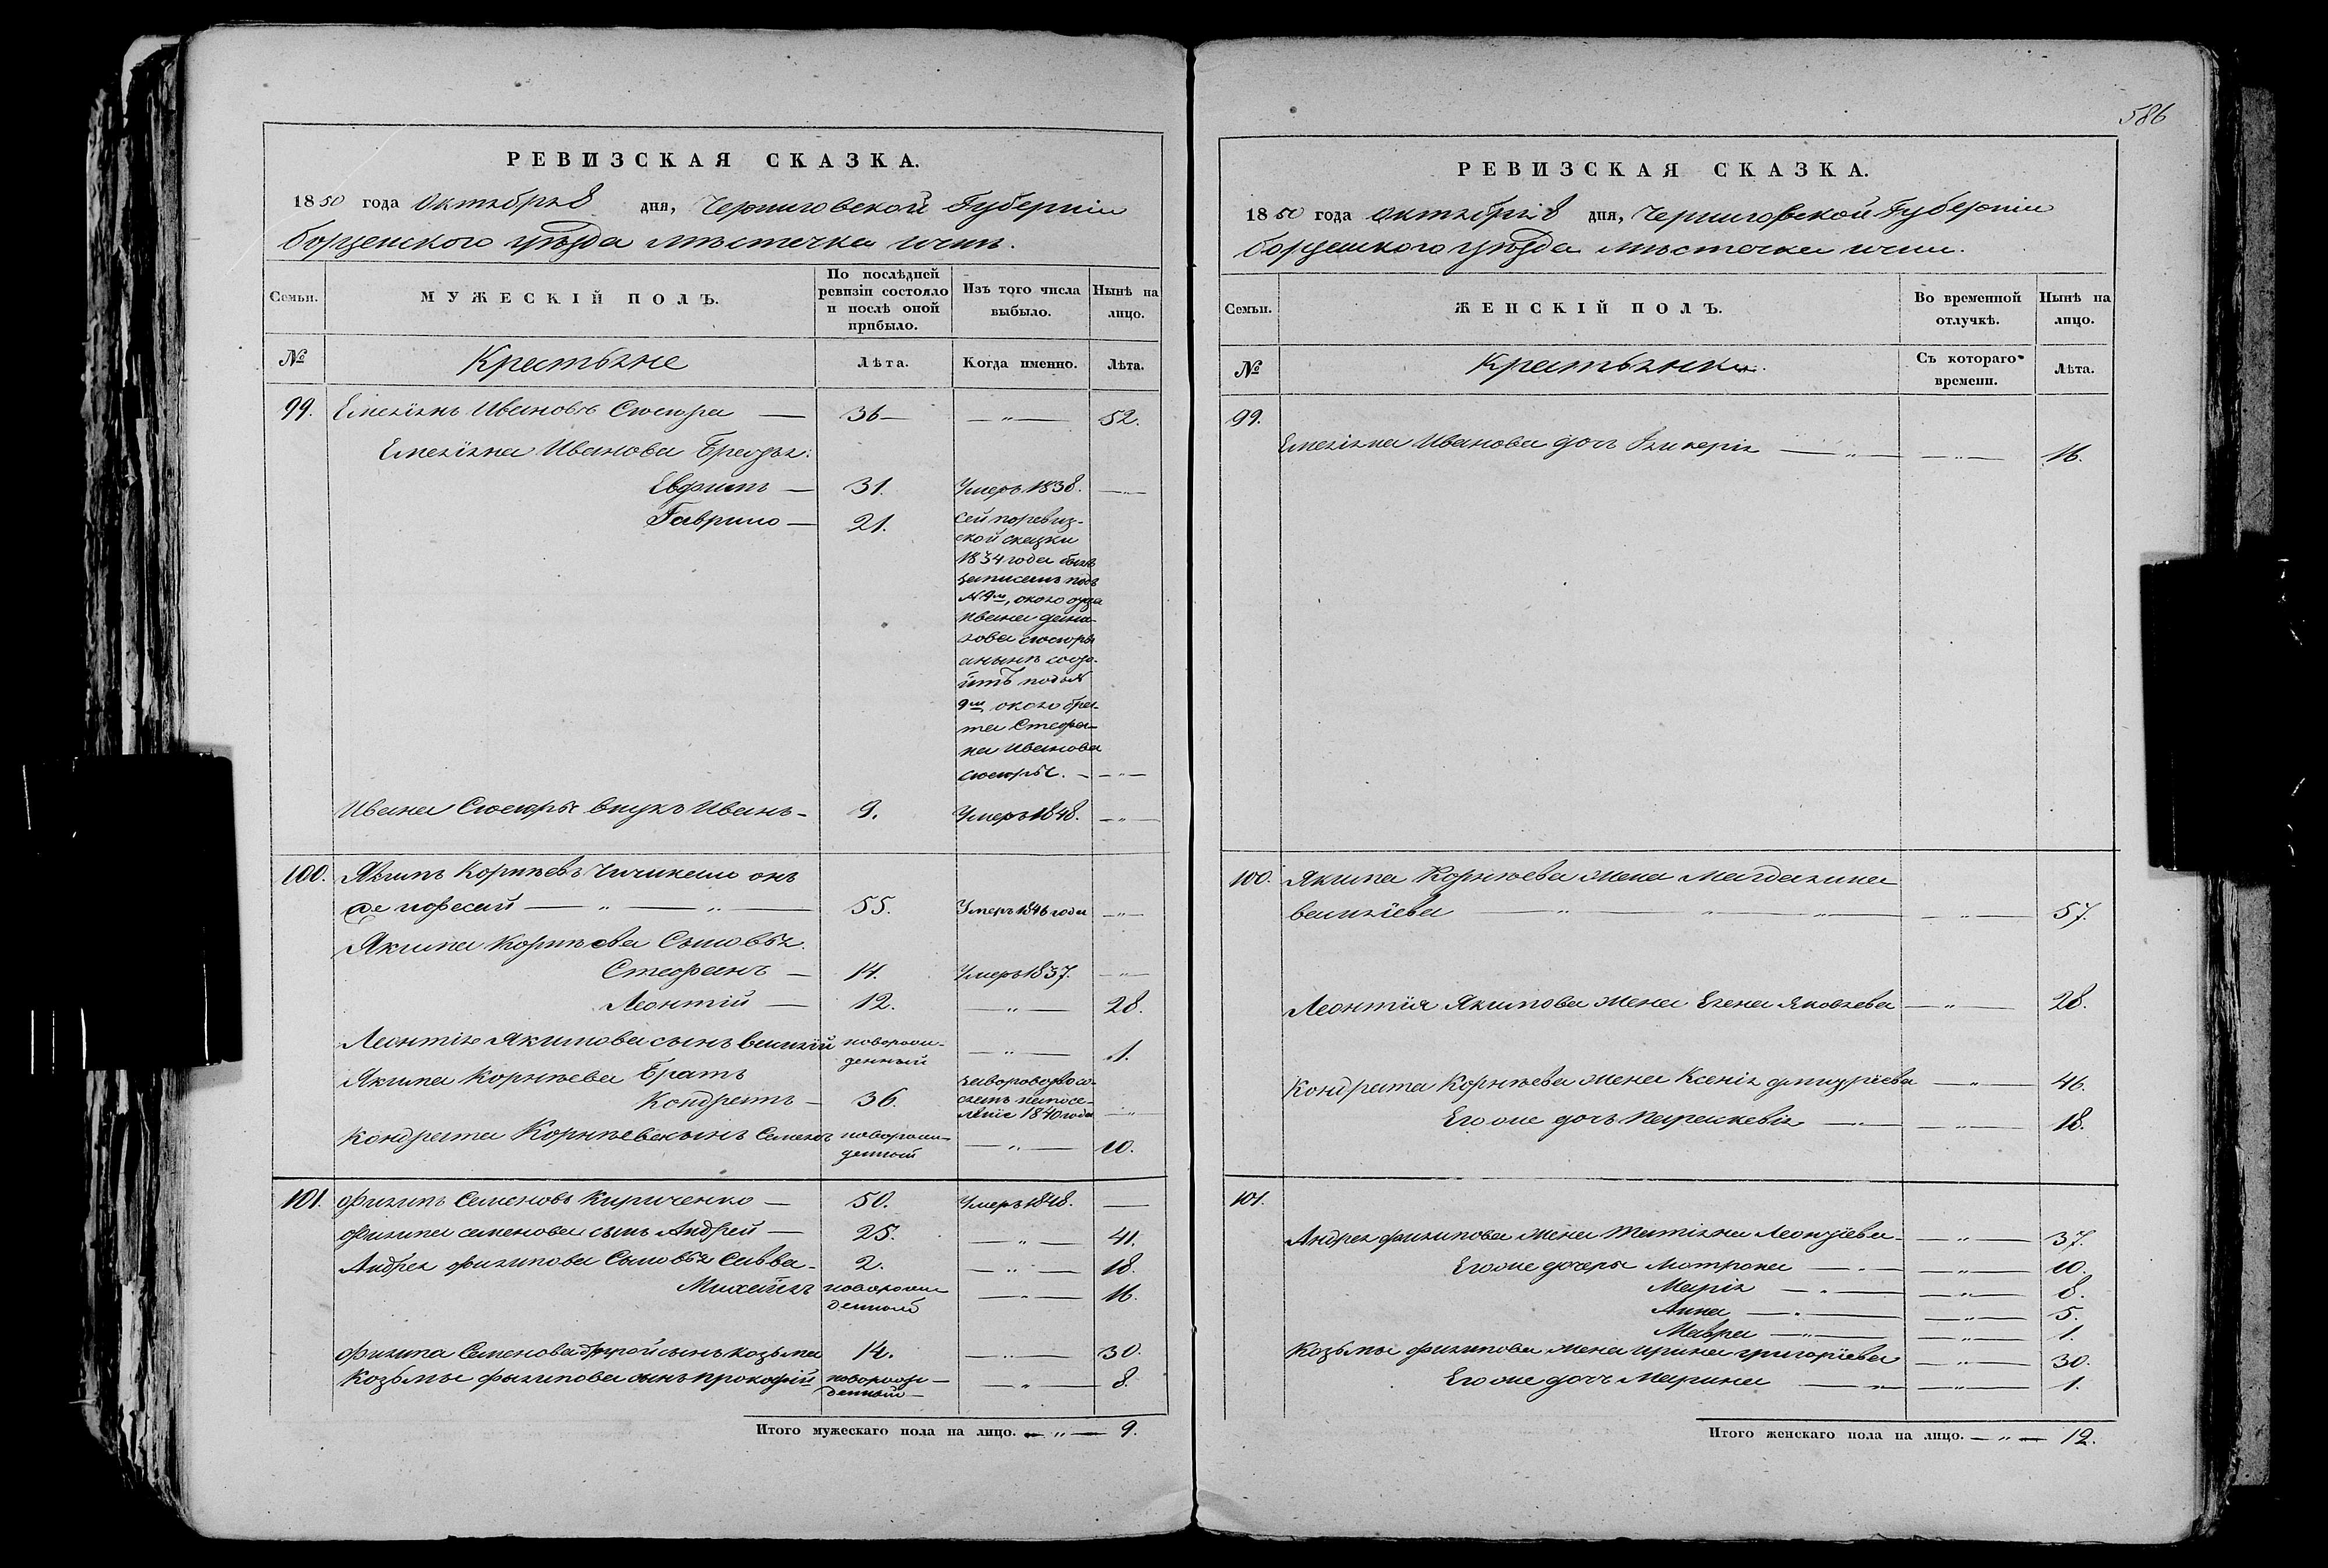 РЕВИЗСКАЯ СКАЗКА.
1850 года Октября 8 дня, Черниговской Губерніи
борзенского уѣзда мѣстечка ични.
Семьи. МУЖЕСКІЙ ПОЛЪ. По послѣдней ревизіи состояло и послѣ оной прибыло. Изъ того числа выбыло. Нынѣ на лицо.
№ Крестьяне Лѣта. Когда именно. Лѣта.
99. Емелiянъ Ивановъ Сюсюра — 36 — „ — 52.
Емелiяна Иванова Братья:
Евфимъ — 31. Умеръ 1838. — „ —
Гаврило — 21. Сей поревиз-
ской сказки
1834 года былъ
записанъ подъ
№ 9м, около отца
Ивана
сюсюры
анынѣ состо-
итъ подъ №
9м, около бра-
та Стефа-
на Иванова
сюсюры. — „ —
Ивана Сюсюры внукъ Иванъ — 9. Умеръ 1848. — „ —
100. Якимъ Корнѣевъ Чичикало онъ
же — „ — „ — 55. Умеръ 1846 года — „ —
Якима Корнѣева Сыновья:
Стефанъ — 14. Умеръ 1837. — „ —
Леонтiй — 12. — „ — 28.
Леонтiя Якимова сынъ Василiй новорож-
денный — „ — 1.
Якима Корнѣева Братъ
Кондратъ — 36. заворовство со-
сланъ напосе-
ленiе 1840 года — „ —
Кондрата Корнѣева сынъ Семенъ новорож-
денный — „ — 10.
101. Филипъ Семеновъ Кириченко — 50. Умеръ 1848. —
Филипа семенова сынъ Андрей — 25. — „ — 41.
Андрея филипова Сыновья Савва — 2. — „ — 18.
Михайлъ новорож-
денный — „ — 16.
Филипа Семенова другой сынъ козьма 14. — „ — 30.
Козьмы филипова сынъ прокофiй новорож-
денный — „ — 8.
Итого мужескаго пола на лицо. — „ — 9.
586
РЕВИЗСКАЯ СКАЗКА.
1850 года октября 8 дня, Черниговской Губерніи
борзенского уѣзда мѣстечка ични.
Семьи. ЖЕНСКІЙ ПОЛЪ. Во временной отлучкѣ. Нынѣ на лицо.
№ Крестьянки. Съ котораго времени. Лѣта.
99.
Емелiяна Иванова дочь Гликерiя — „ — — „ — 16.
100. Якима Корнѣева жена Магдалина
василiева — „ — „ — „ — — „ — 57.
Леонтiя Якимова жена Елена Яковлева — „ — 28.
Кондрата Корнѣева жена Ксенiя дмитрiева — „ — 46.
Егоже дочь Параскевiя — „ — — „ — 18.
101.
Андрея филипова жена Татiяна Леонтiева — — „ — 37.
Егоже дочери Матрона — „ — — „ — 10.
Марiя — „ — — „ — 8.
Анна — „ — — „ — 5.
Мавра — „ — — „ — 1.
Козьмы филипова жена ирина григорiева — „ — 30.
Егоже дочь Марина — „ — — „ — 1.
Итого женскаго пола на лицо. — „ — 12.